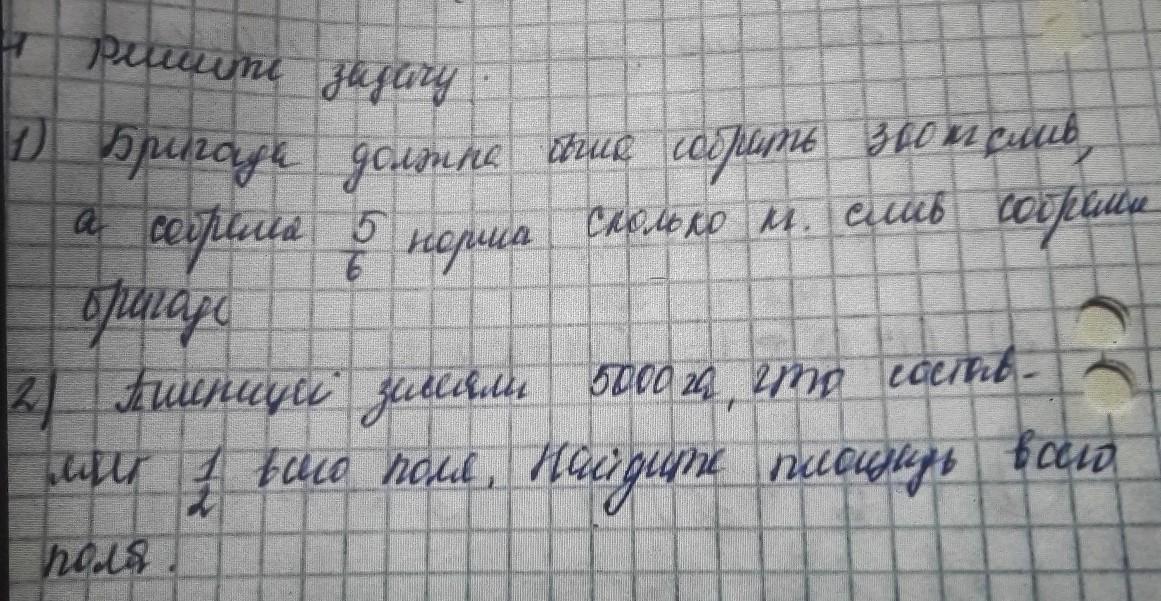 Решите задачу.
1) Бригада должна была собрать 300 кг слив,
а собрала 5/6 норма сколько кг. слив собрали
бригада
2) Пшеницей засеяли 5000 га, что состав-
ляет 1/2 всего поля. Найдите площадь всего
поля.